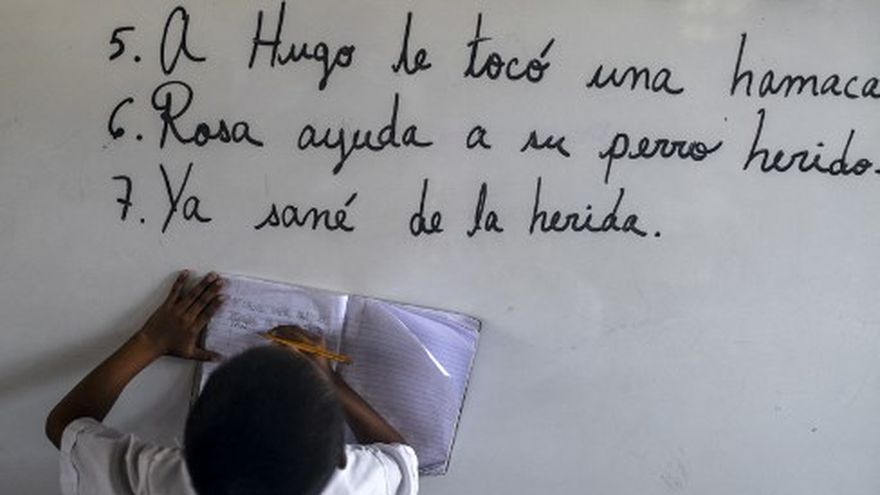 5. A Hugo le tocó una hamaca
6. Rosa ayuda a su perro herido.
7. Ya sané de la herida.